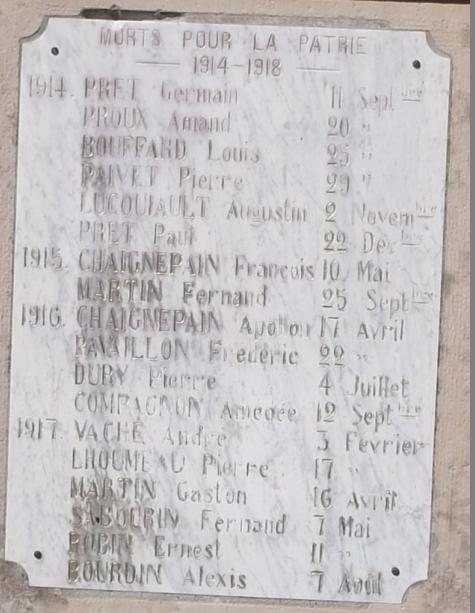 MORTS POUR LA PATRIE
1914-1918
1914. PRET Germain 11 Sept bre
PROUX Amand 20 "
BOUFFARD Louis 25 "
PAIVET Pierre 29 "
LUCQUIAULT Augustin 2 Novem bre
PRET Paul 22 Déc bre
1915. CHAIGNEPAIN François 10 Mai
MARTIN Fernand 25 Sept bre
1916. CHAIGNEPAIN Apollon 17 Avril
PAVAILLON Frédéric 22 "
DURY Pierre 4 Juillet
COMPAGNON Amédée 12 Sept bre
1917. VACHÉ André 3 Février
LHOUMEAU Pierre 17 "
MARTIN Gaston 16 Avril
SABOURIN Fernand 7 Mai
ROBIN Ernest 11 "
BOURDIN Alexis 7 Août